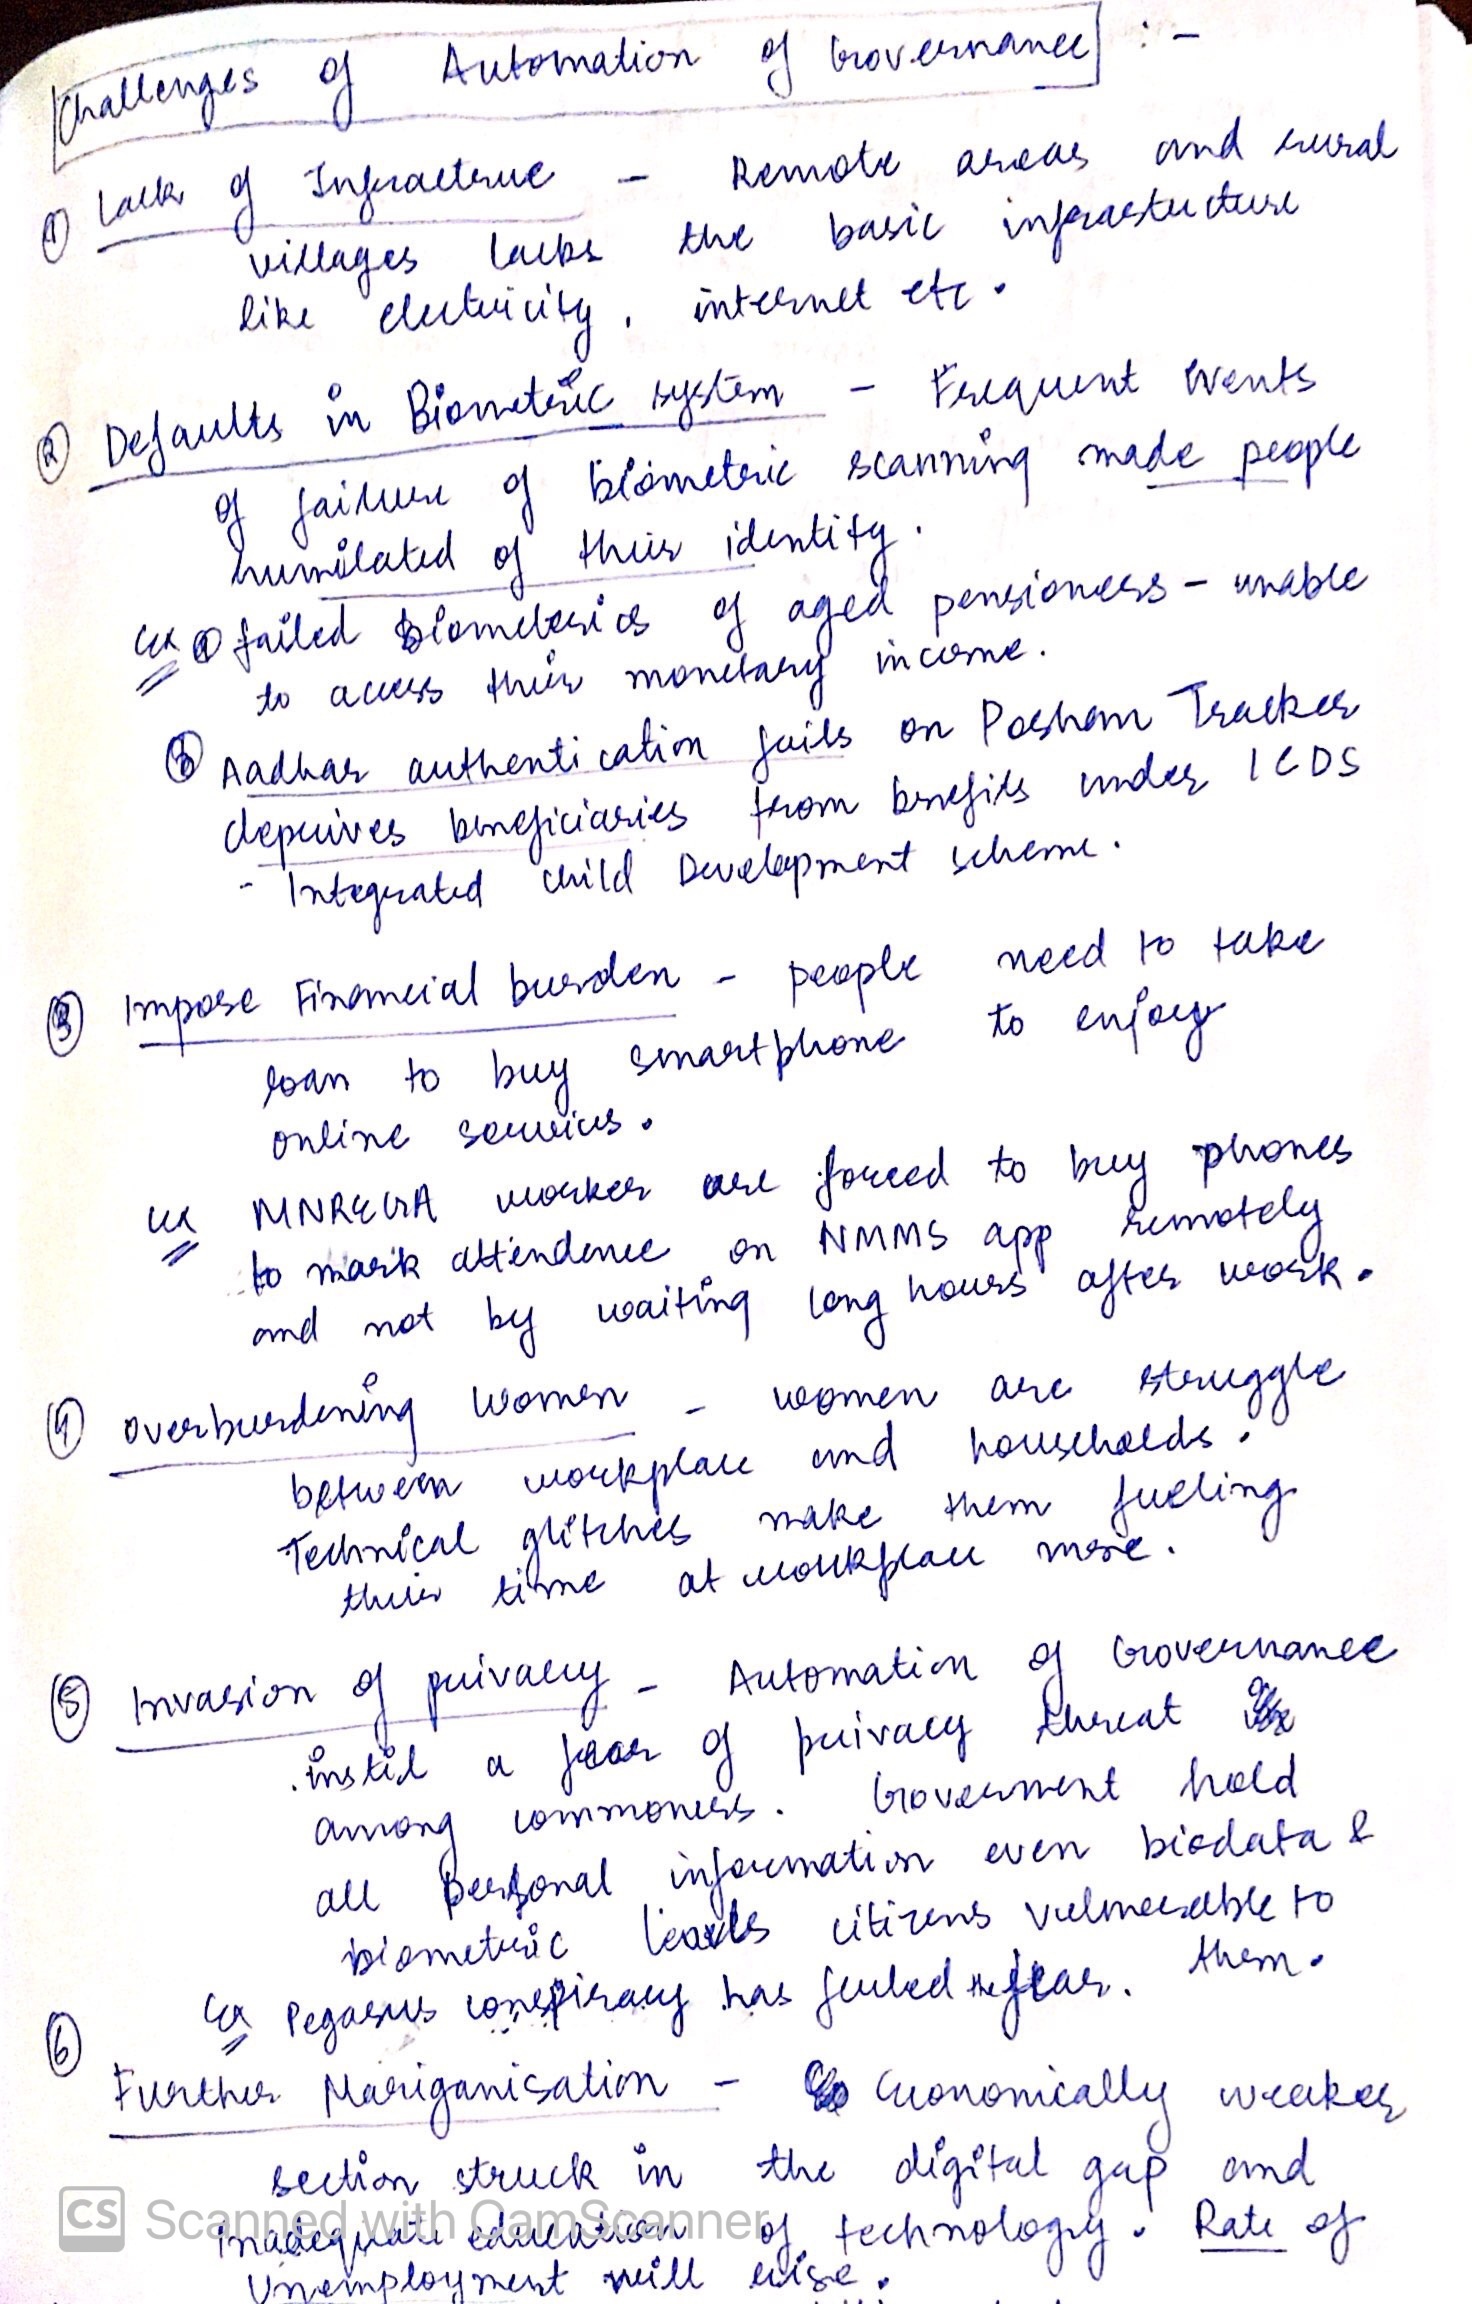 Challenges of Automation of Governance : -
① Lack of Infractruc - Remote areas and rural
villages lacks the basic infrastucture
like electricity, internet etc.
② Defaults in Biometric system - Frequent events
of failure of biometric scanning made people
humilated of their identity.
Ex ⓐ failed Biometrics of aged pensioners - unable
to access their monetary income.
ⓑ Aadhar authentication fails on Poshan Tracker
deprives beneficiaries from benefits under ICDS
- Integrated Child Development scheme.
③ Impose Financial burden - people need to take
loan to buy smartphone to enjoy
online services.
Ex MNREGA worker are forced to buy phones
to mark attendence on NMMS app remotely
and not by waiting long hours after work.
④ Overburdening Women - women are struggle
between workplace and households.
Technical glitches make them fueling
their time at workplace more.
⑤ Invasion of privacy - Automation of Governance
instil a fear of privacy threat
among commoners. Goverment hold
all personal information even biodata &
biometric leads citizens vulnerable to
them.
Ex Pegasus conspiracy has fueled the fear.
⑥ Further Mariganisation - Economically weaker
section struck in the digital gap and
inadequate education of technology. Rate of
Unemployment will rise.
CS Scanned with CamScanner